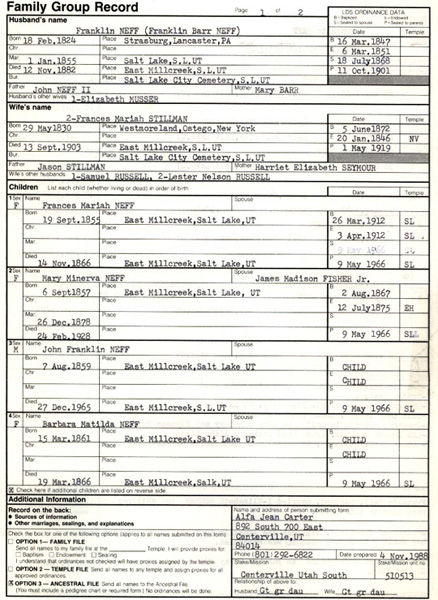 Family Group Record
Page 1 of 2
Husband's name
Franklin NEFF (Franklin Barr NEFF)
LDS ORDINANCE DATA
Born 18 Feb.1824 Place Strasburg,Lancaster,PA
Date Temple
B 16 Mar.1847
Chr. Place
E 6 Mar.1851
Mar. 1 Jan.1855 Place Salt Lake,S.L,UT
S 18 July1868
Died 12 Nov.1882 Place East Millcreek,S.L,UT
P 11 Oct.1901
Bur. Place Salt Lake City Cemetery,S.L,UT
Father John NEFF II Mother Mary BARR
Husband's other wives 1-Elizabeth MUSSER
Wife's name
2-Frances Mariah STILLMAN
Date Temple
Born 29 May1830 Place Westmoreland,Ostego,New York
B 5 June1872
Chr. Place
E 20 Jan.1846 NV
Died 13 Sep.1903 Place East Millcreek,S.L,UT
P 1 May.1919
Bur. Place Salt Lake City Cemetery,S.L,UT
Father Jason STILLMAN Mother Harriet Elizabeth SEYMOUR
Wife's other husbands 1-Samuel RUSSELL, 2-Lester Nelson RUSSELL
Children List each child (whether living or dead) in order of birth
Date Temple
1 Sex F Name Frances Mariah NEFF Spouse
Born 19 Sept.1855 Place East Millcreek,Salt Lake,UT
B 26 Mar.1912 SL
Chr. Place
E 3 Apr.1912 SL
Mar. Place
S 9 May 1966 SL
Died 14 Nov.1866 Place East Millcreek,Salt Lake,UT
P 9 May 1966 SL
2 Sex F Name Mary Minerva NEFF Spouse James Madison FISHER Jr.
Born 6 Sept1857 Place East Millcreek,Salt Lake, UT
B 2 Aug.1867
Chr. Place
E 12 July1875 EH
Mar. 26 Dec.1878 Place
S
Died 24 Feb.1928 Place
P 9 May 1966 SL
3 Sex M Name John Franklin NEFF Spouse
Born 7 Aug.1859 Place East Millcreek,Salt Lake UT
B CHILD
Chr. Place
E CHILD
Mar. Place
S
Died 27 Dec.1965 Place East Millcreek,S.L,UT
P 9 May 1966 SL
4 Sex F Name Barbara Matilda NEFF Spouse
Born 15 Mar.1861 Place East Millcreek,Salt Lake,UT
B CHILD
Chr. Place
E CHILD
Mar. Place
S
Died 19 Mar.1866 Place East Millcreek,Salk,UT
P 9 May 1966 SL
Check here if additional children are listed on reverse side.
Additional Information
Record on the back:
• Sources of information
• Other marriages, sealings, and explanations
Check the box for one of the following options (applies to all names submitted on this form)
OPTION 1— FAMILY FILE
Send all names to my family file at the Temple. I will provide proxies for:
Baptism Endowment Sealing
I understand that ordinances not checked will have proxies assigned by the temple.
OPTION 2— TEMPLE FILE Send all names to any temple and assign proxies for all approved ordinances.
OPTION 3— ANCESTRAL FILE Send all names to the Ancestral File.
(You must include a pedigree chart or required form.) No ordinances will be done.
Name and address of person submitting form
Alfa Jean Carter
892 South 700 East
Centerville, UT
84014
Phone (801)292-6822 Date prepared 4 Nov.1988
Stake/Mission Stake/Mission unit no.
Centerville Utah South 510513
Relationship of above to:
Husband Gt gr dau Wife Gt. gr dau